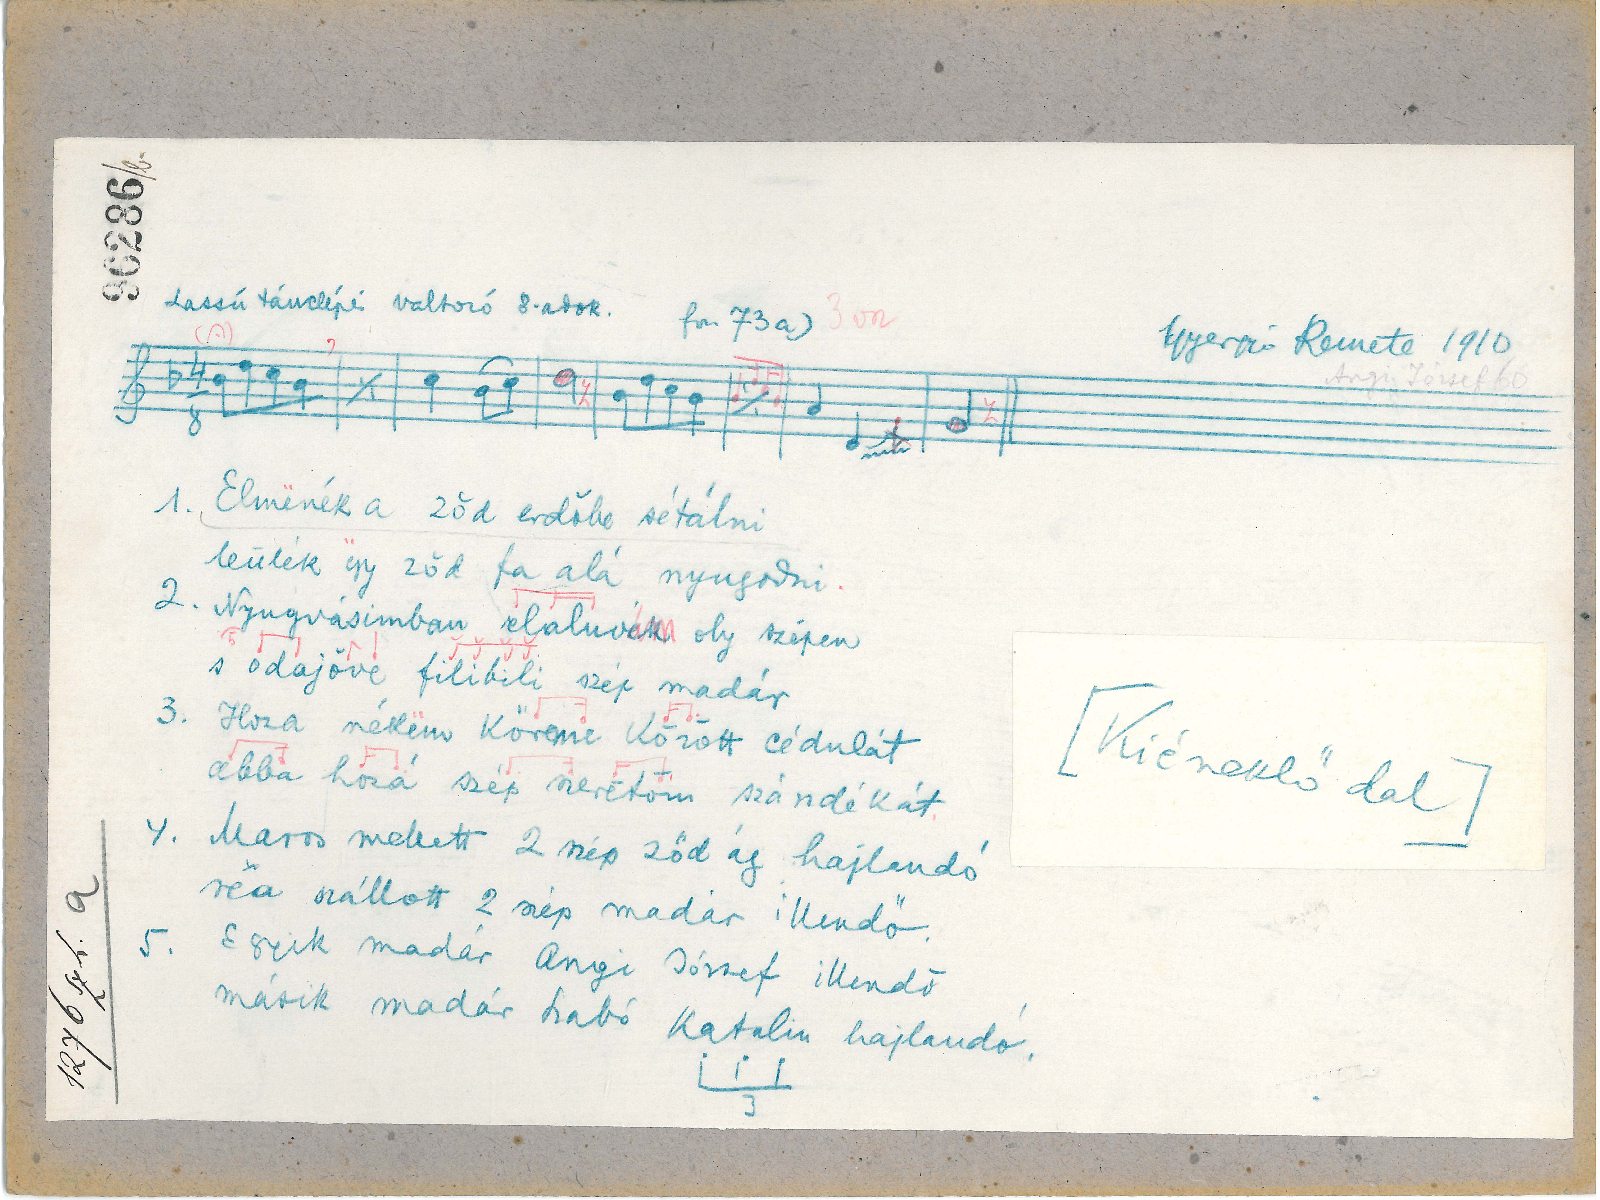 96286/
Lassú tánclépés változó 8-adok.
fon 73a) 3
Gyergyó Remete 1910
Angi József 60
(A)
4
8
1. Elmënék a ződ erdőbe sétálni
leülék ëgy ződ fa alá nyugodni.
2. Nyugvásimban elaluvék oly szépen
s odajőve filibili szép madár
3. Hoza nékëm körme között cédulát
abba hozá szép szeretőm szándékát.
4. Maros mellett 2 szép ződ ág hajlandó
rëa szállott 2 szép madár illendő.
5. Egyik madár Angi József illendő
másik madár Szabó Katalin hajlandó.
3
[Kiéneklő dal]
1276 a